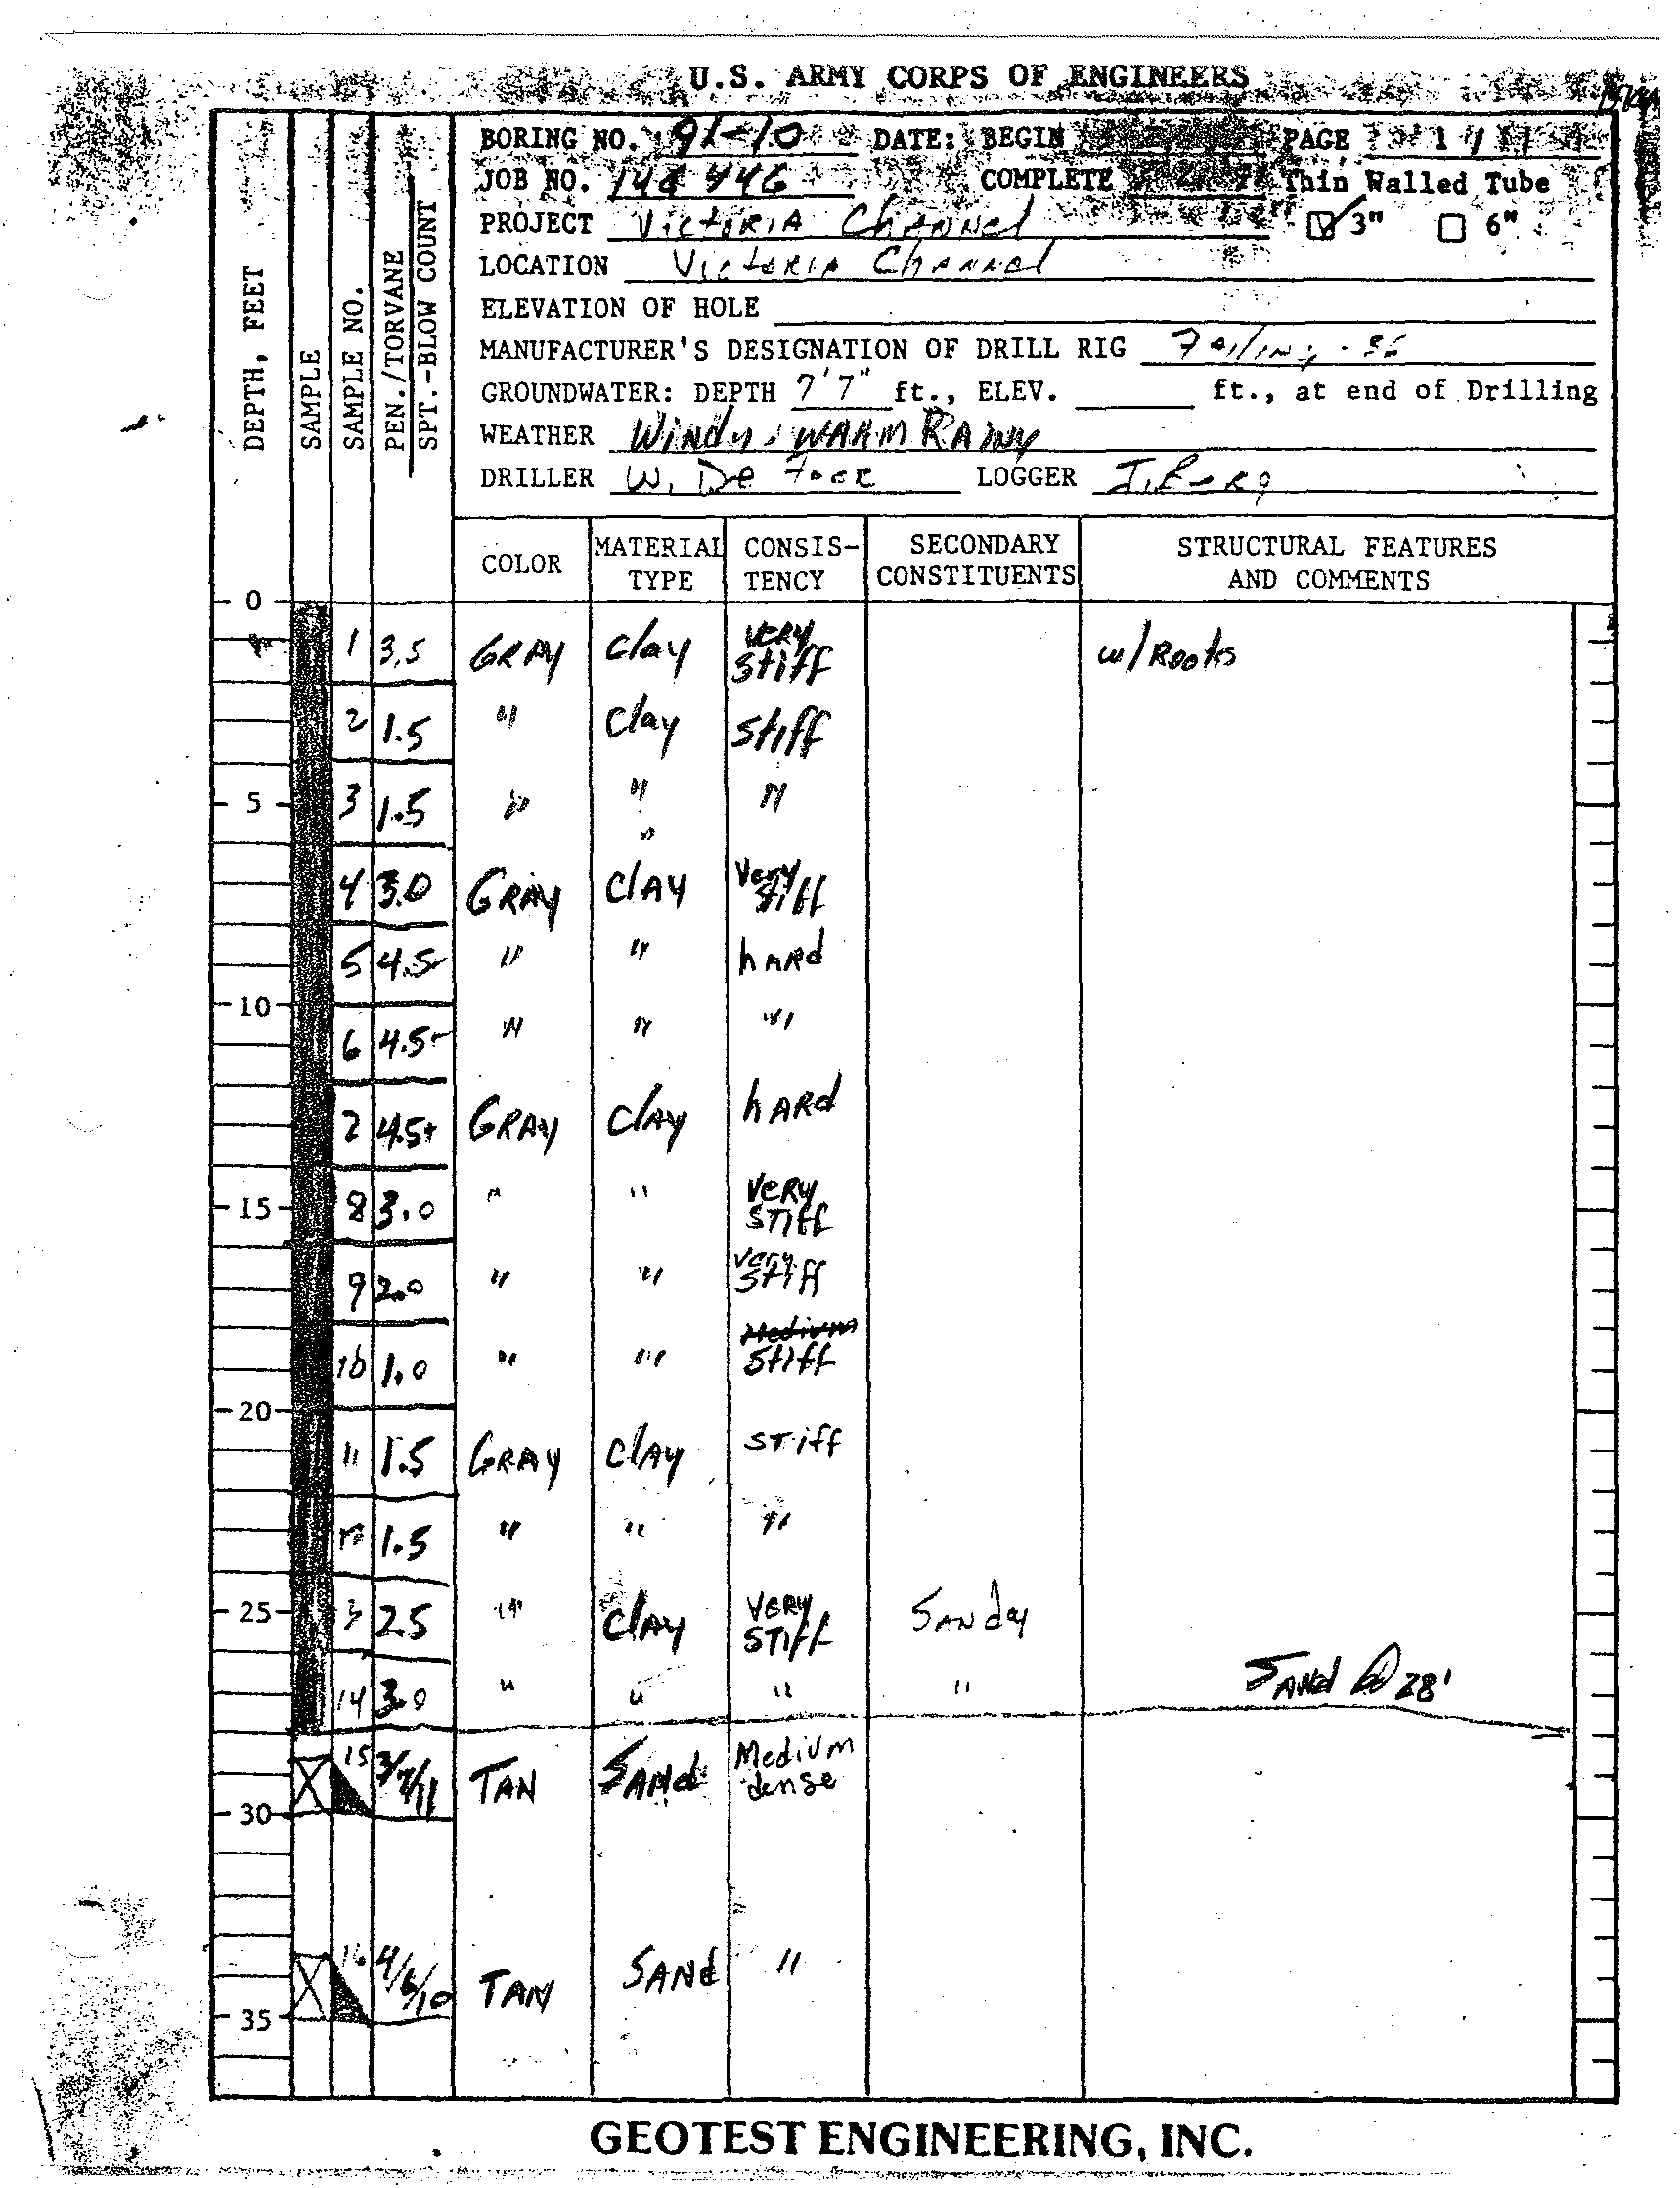 U.S. ARMY CORPS OF ENGINEERS
BORING NO. 91-10 DATE: BEGIN PAGE 1 / 1
JOB NO. COMPLETE Thin Walled Tube
PROJECT VICTORIA CHANNEL 3" 6"
LOCATION VICTORIA CHANNEL
ELEVATION OF HOLE
MANUFACTURER'S DESIGNATION OF DRILL RIG
GROUNDWATER: DEPTH 7'7" ft., ELEV. ft., at end of Drilling
WEATHER Windy, WARM RAINY
DRILLER W. De LOGGER
DEPTH, FEET
SAMPLE
SAMPLE NO.
PEN./TORVANE
SPT.-BLOW COUNT
COLOR MATERIAL TYPE CONSIS-TENCY SECONDARY CONSTITUENTS STRUCTURAL FEATURES AND COMMENTS
0
1 3.5 GRAY clay VERY stiff w/ Roots
2 1.5 " clay stiff
5 3 1.5 " " "
"
4 3.0 GRAY CLAY Very stiff
5 4.5 " " hARd
10
6 4.5 " " "
7 4.5+ GRAY CLAY hARd
15 8 3.0 " " VeRY STIFF
9 2.0 " " very stiff
10 1.0 " " Medium stiff
20
11 1.5 GRAY CLAY STiff
12 1.5 " " "
25 13 2.5 " CLAY VERY STIFF SANdy
14 3.0 " " " " SANd @ 28'
15 3/7/11 TAN SANd Medium dense
30
16 4/6/10 TAN SANd "
35
GEOTEST ENGINEERING, INC.